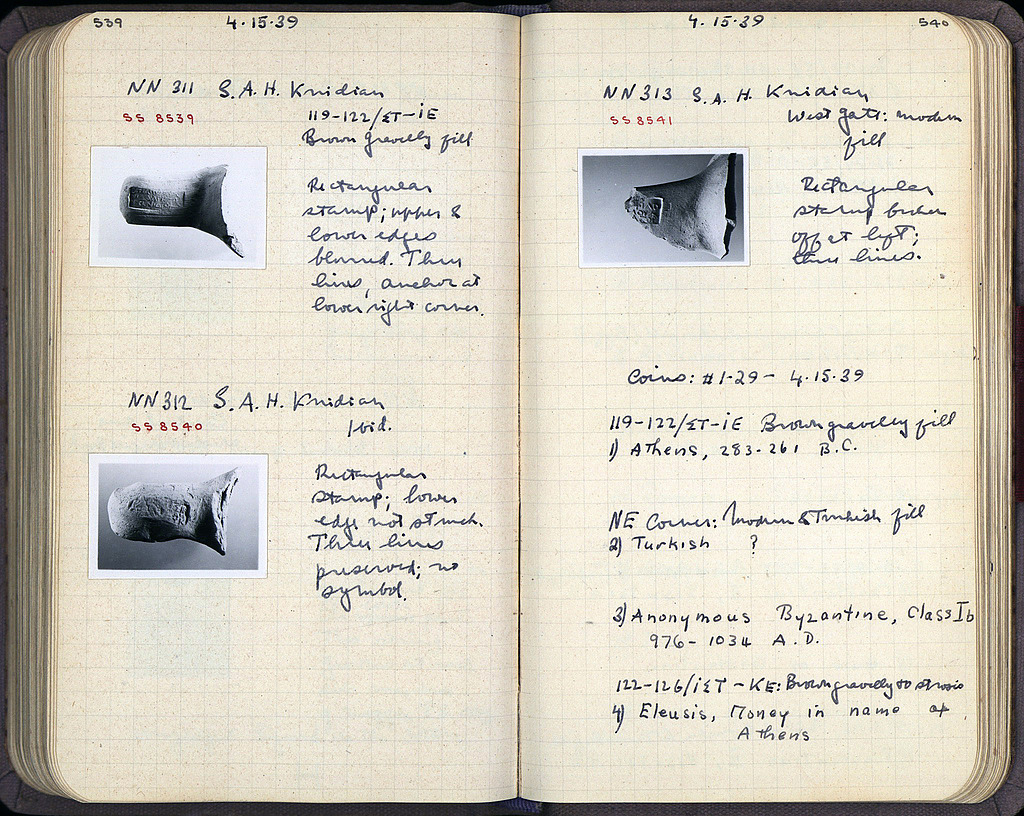 539
4.15.39
NN 311 S.A.H. Knidian
SS 8539
119-122/ΣΤ-ΙΕ
Brown gravelly fill
Rectangular
stamp; upper &
lower edges
blurred. Three
lines, anchor at
lower right corner.
NN 312 S.A.H. Knidian
SS 8540
Ibid.
Rectangular
stamp; lower
edge not struck.
Three lines
preserved; no
symbol.
4.15.39
540
NN 313 S.A.H. Knidian
SS 8541
West Gate: modern
fill
Rectangular
stamp broken
off at left;
three lines.
Coins: #1-29 - 4.15.39
119-122/ΣΤ-ΙΕ Brown gravelly fill
1) Athens, 283-261 B.C.
NE Corner: Modern & Turkish fill
2) Turkish ?
3) Anonymous Byzantine, Class Ib
976-1034 A.D.
122-126/ΙΣΤ-ΚΕ: Brown gravelly
4) Eleusis, Money in name of
Athens